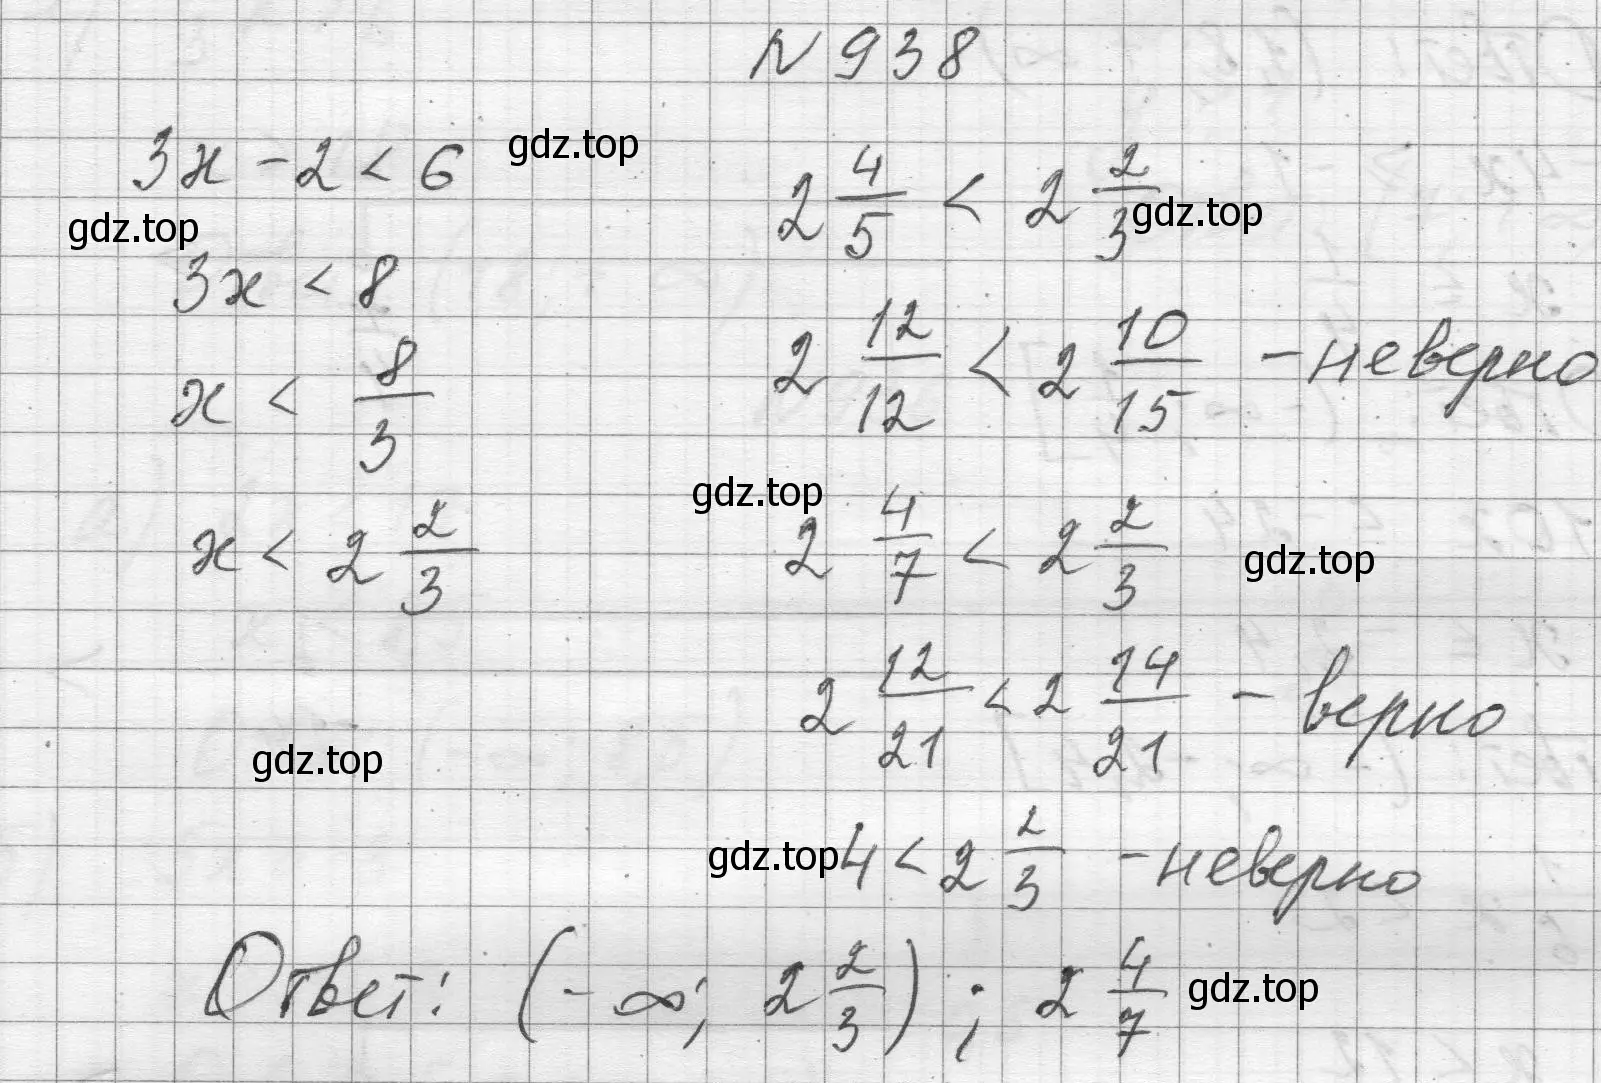 N 938
3x - 2 < 6
3x < 8
x < 8/3
x < 2 2/3
2 4/5 < 2 2/3
2 12/12 < 2 10/15 - неверно
2 4/7 < 2 2/3
2 12/21 < 2 14/21 - верно
4 < 2 2/3 - неверно
Ответ: (-∞; 2 2/3) ; 2 4/7
gdz.top
gdz.top
gdz.top
gdz.top
gdz.top
gdz.top
gdz.top
gdz.top